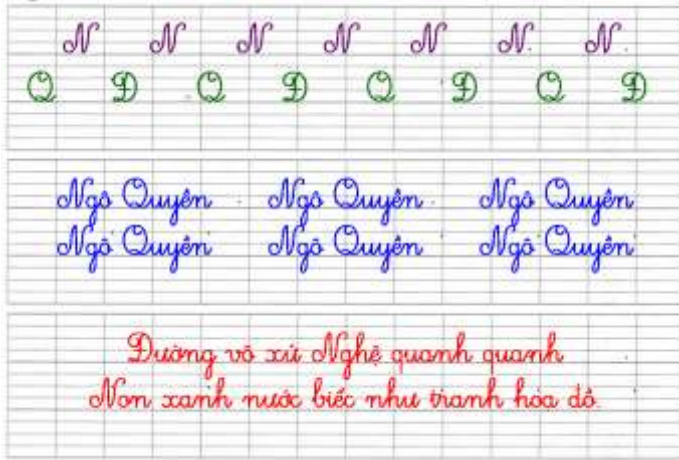 N N N N N N N
Q Đ Q Đ Q Đ Q Đ
Ngô Quyền Ngô Quyền Ngô Quyền
Ngô Quyền Ngô Quyền Ngô Quyền
Đường vô xứ Nghệ quanh quanh
Non xanh nước biếc như tranh họa đồ.